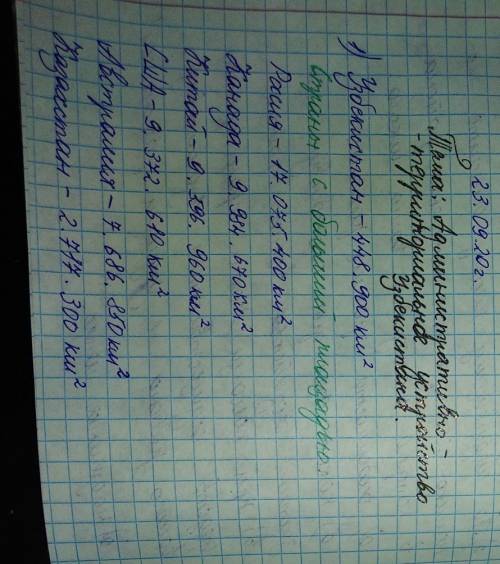 23.09.20г.
Тема: Административно-
-территориальное устройство
Узбекистана.
1) Узбекистан - 448.900 км²
Страны с большей площадью:
Россия - 17.075 400 км²
Канада - 9.984.670 км²
Китай - 9.596.960 км²
США - 9.372.610 км²
Австралия - 7.686.850 км²
Казахстан - 2.717.300 км²